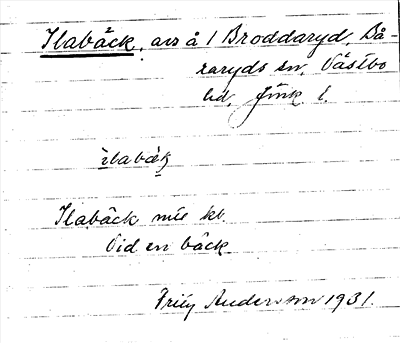 Ilabäck, avs å 1 Broddaryd, Bå-
raryds sn, Västbo
hd, Jönk l.
ìlabäk
Ilabäck
Vid en bäck
Frity Andersson 1931.